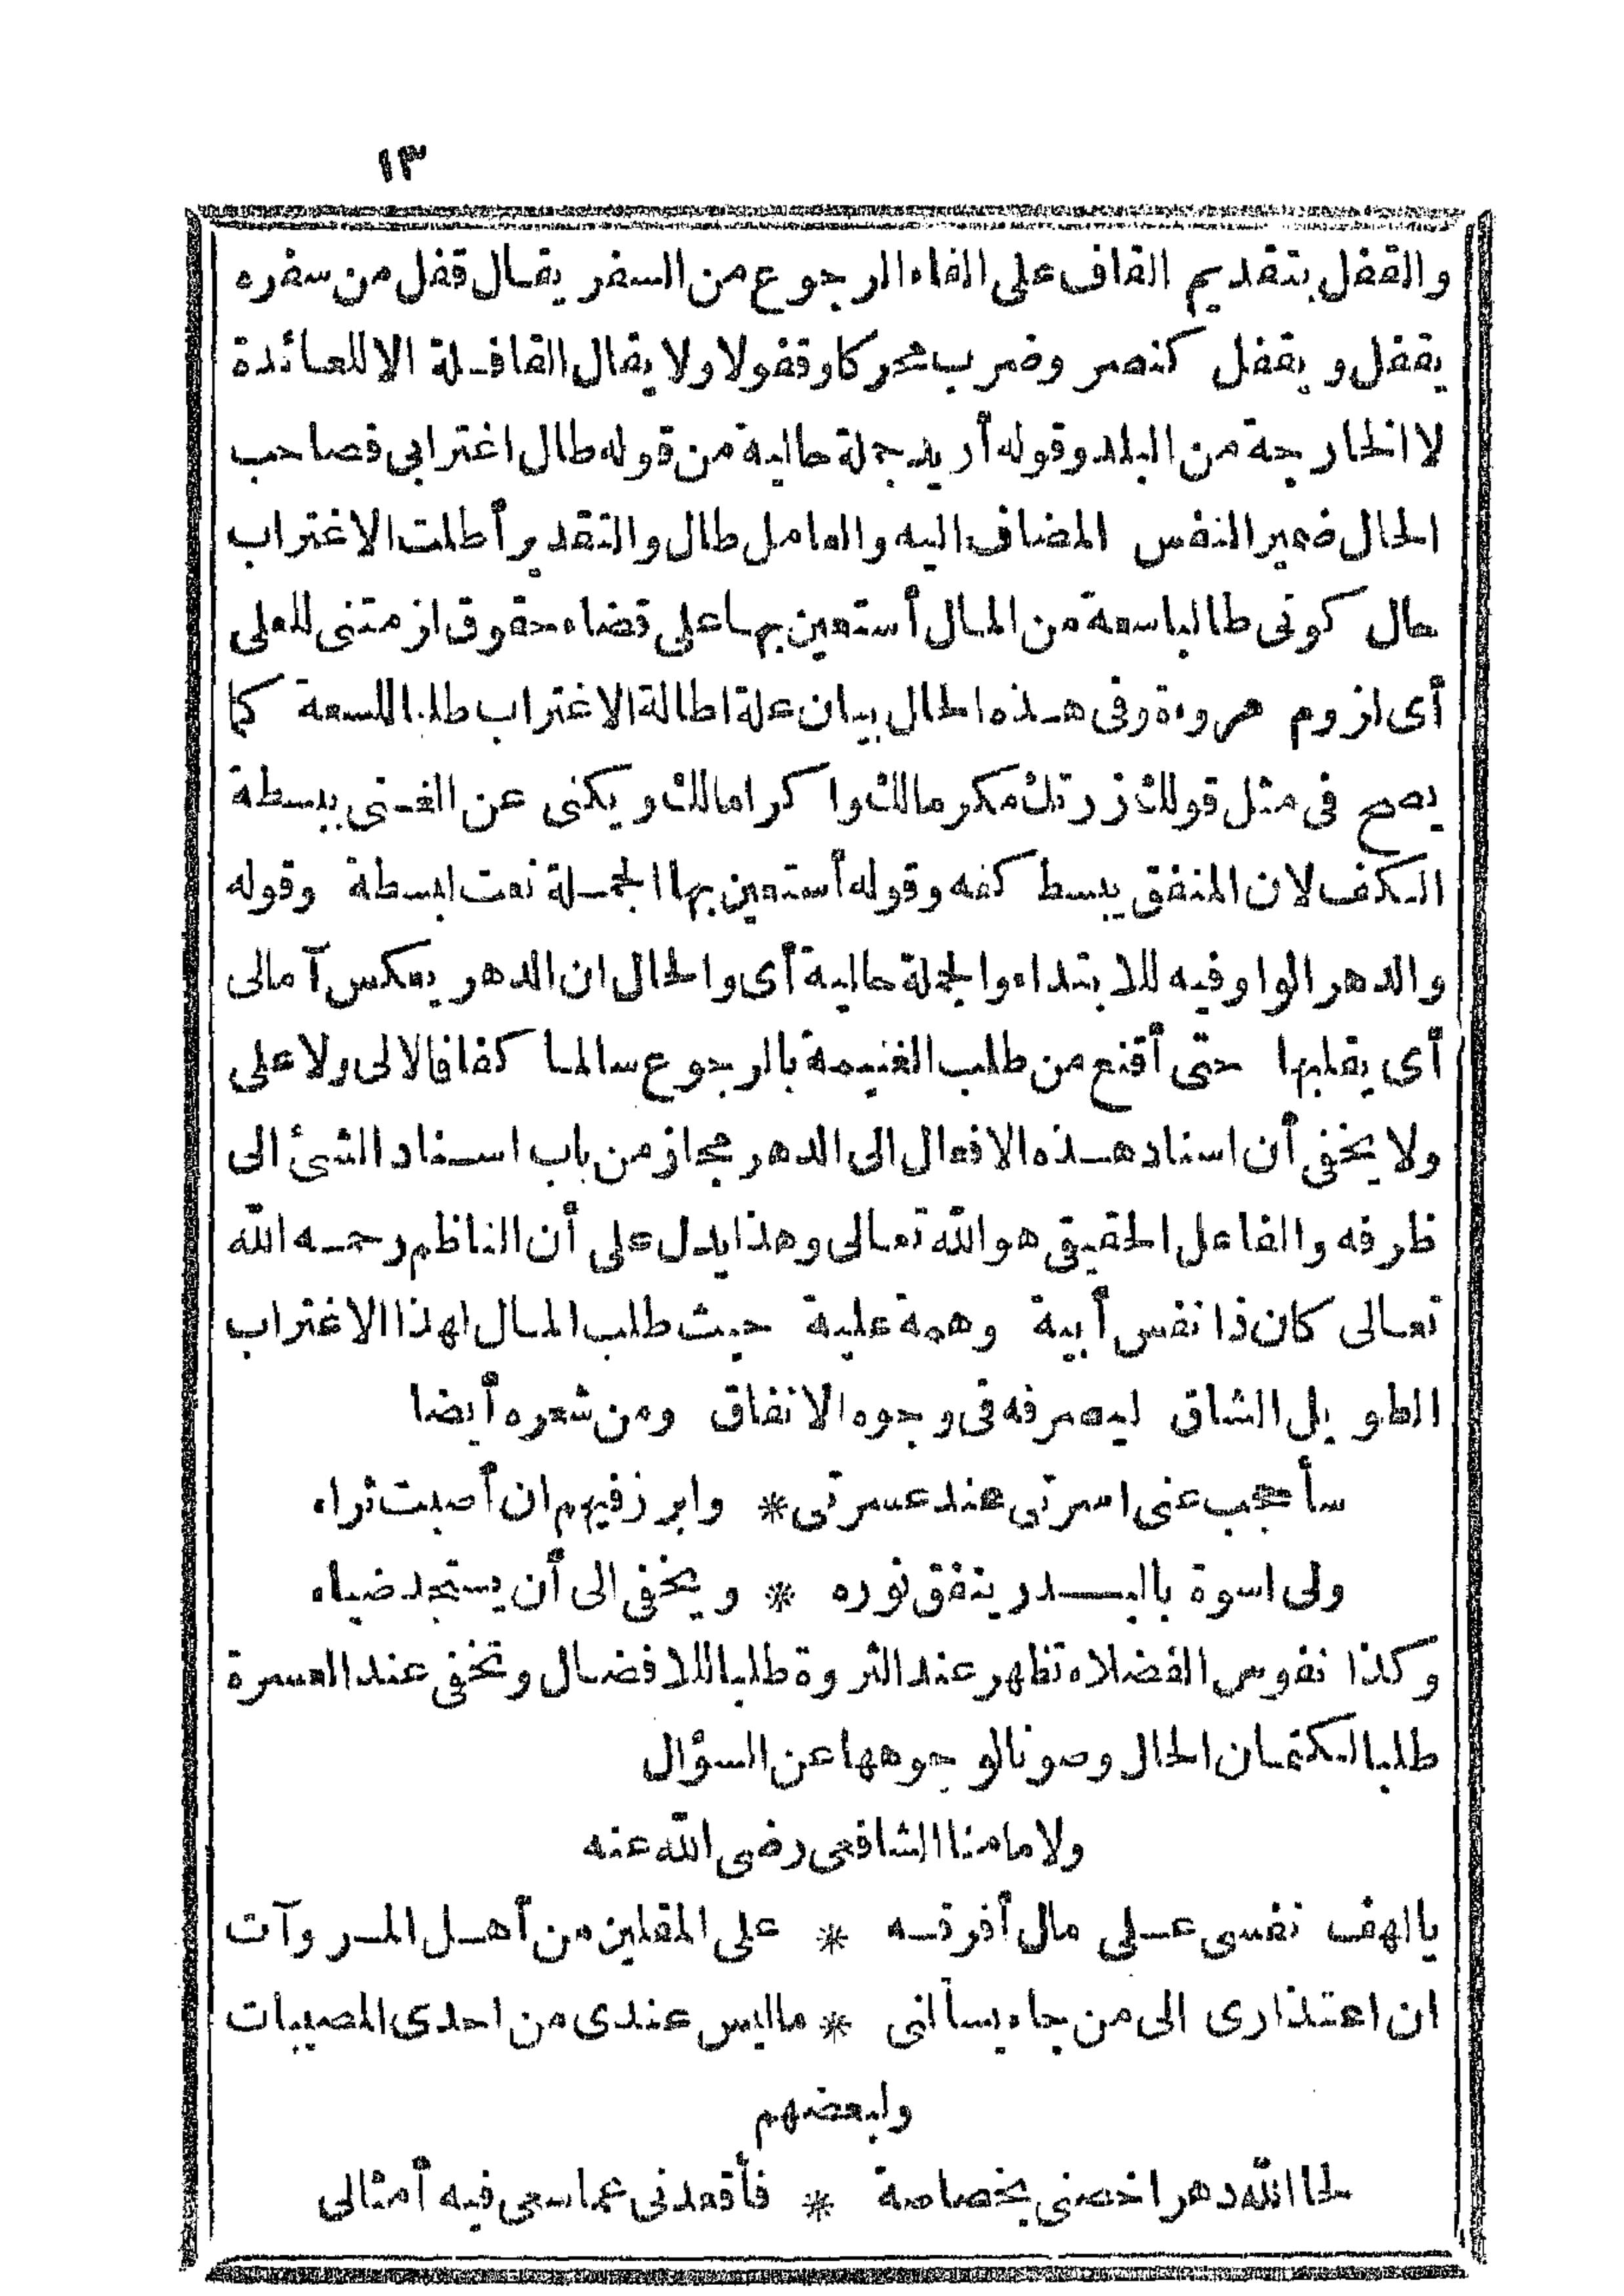 ١٣
والقفل بتقديم القاف على الفاء الرجوع من السفر يقال قفل من سفره
يقفل ويقفل كنصر وضرب محركا وقفولا ولا يقال القافلة الا للعائدة
لا الخارجة من البلد وقوله أريد جملة حالية من قوله طال اغترابي فصاحب
الحال ضمير النفس المضاف اليه والعامل طال والتقدير أطلت الاغتراب
حال كوني طالبا سعة من المال أستعين بها على قضاء حقوق ازمتنى للعلى
أى ازوم مروءة وفى هذه الحال بيان علة اطالة الاغتراب طلبا للسعة كما
يصح فى مثل قولك زرتك مكرما لك واكراما لك ويكنى عن الغنى ببسطة
الكف لان المنفق يبسط كفه وقوله أستعين بها الجملة نعت لبسطة وقوله
والدهر الواو فيه للابتداء والجملة حالية أى والحال ان الدهر يعكس آمالى
أى يقلبها حتى أقنع من طلب الغنيمة بالرجوع سالما كفافا لا لى ولا على
ولا يخفى أن اسناد هذه الافعال الى الدهر مجاز من باب اسناد الشئ الى
ظرفه والفاعل الحقيقى هو الله تعالى وهذا يدل على أن الناظم رحمه الله
تعالى كان ذا نفس أبية وهمة علية حيث طلب المال لهذا الاغتراب
الطويل الشاق ليصرفه فى وجوه الانفاق ومن شعره أيضا
سأحجب عنى اسرتى عند عسرتى * وابرز فيهم ان أصبت ثراء
ولى اسوة بالبدر ينفق نوره * ويخفى الى أن يستجد ضياء
وكذا نفوس الفضلاء تظهر عند الثروة طلبا للافضال وتخفى عند العسرة
طلبا لكتمان الحال وصونا لوجوهها عن السؤال
ولامامنا الشافعى رضى الله عنه
يا لهف نفسى على مال أفرقه * على المقلين من أهل المروآت
ان اعتذارى الى من جاء يسألنى * ما ليس عندى من احدى المصيبات
ولبعضهم
لحا الله دهرا خصنى بخصاصة * فأقعدنى عما سعى فيه أمثالى